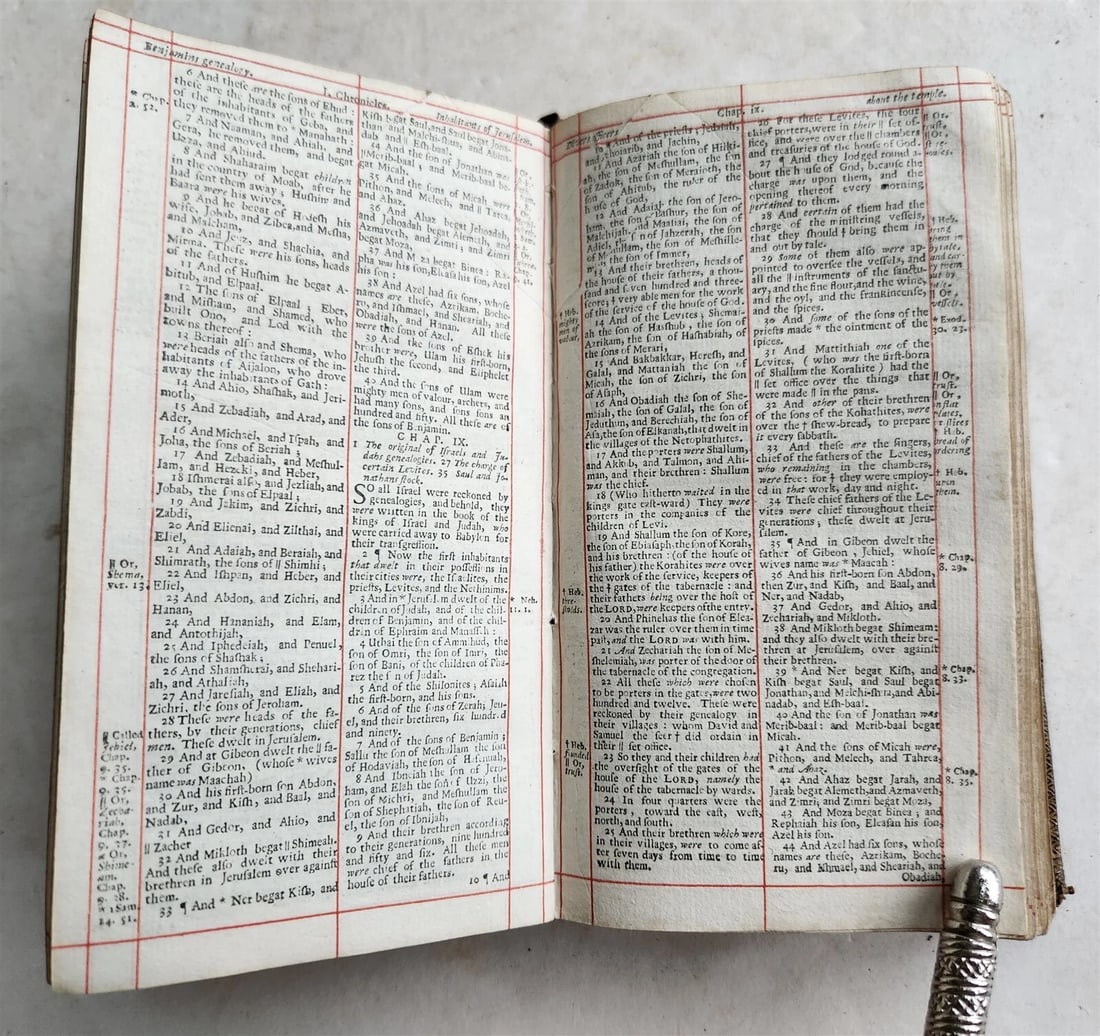 Benjamins genealogy.
I. Chronicles.
Inhabitants of Jeruſalem,
6 And theſe are the ſons of Ehud :
theſe are the heads of the fathers
of the inhabitants of Geba, and
they removed them to * Manahath :
7 And Naaman, and Ahiah, and
Gera, he removed them, and begat
Uzza, and Ahihud.
8 And Shaharaim begat children
in the country of Moab, after he
had ſent them away ; Huſhim and
Baara were his wives.
9 And he begat of Hodeſh his
wife, Jobab, and Zibea, and Meſha,
and Malcham,
10 And Jeuz, and Shachia, and
Mirma. Theſe were his ſons, heads
of the fathers.
11 And of Huſhim he begat A-
bitub, and Elpaal.
12 The ſons of Elpaal ; Eber,
and Miſham, and Shamed, who
built Ono, and Lod with the
towns thereof :
13 Beriah alſo and Shema, who
were heads of the fathers of the in-
habitants of Aijalon, who drove
away the inhabitants of Gath :
14 And Ahio, Shaſhak, and Jeri-
moth,
15 And Zebadiah, and Arad, and
Ader,
16 And Michael, and Iſpah, and
Joha, the ſons of Beriah ;
17 And Zebadiah, and Meſhul-
lam, and Hezeki, and Heber,
18 Iſhmerai alſo, and Jezliah, and
Jobab, the ſons of Elpaal ;
19 And Jakim, and Zichri, and
Zabdi,
20 And Elienai, and Zilthai, and
Eliel,
21 And Adaiah, and Beraiah, and
Shimrath, the ſons of || Shimhi ;
22 And Iſhpan, and Heber, and
Eliel,
23 And Abdon, and Zichri, and
Hanan,
24 And Hananiah, and Elam,
and Antothijah,
25 And Iphedeiah, and Penuel,
the ſons of Shaſhak ;
26 And Shamſherai, and Shehari-
ah, and Athaliah,
27 And Jareſiah, and Eliah, and
Zichri, the ſons of Jeroham.
28 Theſe were heads of the fa-
thers, by their generations, chief
men. Theſe dwelt in Jeruſalem.
29 And at Gibeon dwelt the || fa-
ther of Gibeon, (whoſe * wives
name was Maachah)
30 And his firſt-born ſon Abdon,
and Zur, and Kiſh, and Baal, and
Nadab,
31 And Gedor, and Ahio, and
|| Zacher
32 And Mikloth begat || Shimeah.
And theſe alſo dwelt with their
brethren in Jeruſalem over againſt
them.
33 ¶ And * Ner begat Kiſh, and
* Chap.
2. 52.
|| Or,
Shema,
ver. 13.
|| Called
Jehiel,
Chap.
9. 35.
* Chap.
9. 35.
|| Or,
Chap.
9. 37.
Chap.
9. 28.
* 1 Sam.
14. 51.
Kiſh begat Saul, and Saul begat Jona-
than and Malchi-ſhua, and Abina-
dab, and Eſhbaal.
34 And the ſon of Jonathan was
|| Merib-baal ; and Merib-baal be-
gat Micah.
35 And the ſons of Micah were
Pithon, and Melech, and || Tarea,
and Ahaz.
36 And Ahaz begat Jehoadah,
and Jehoadah begat Alemeth, and
Azmaveth, and Zimri ; and Zimri
begat Moza,
37 And Moza begat Binea : Ra-
pha was his ſon, Eleaſa his ſon, Azel
his ſon :
38 And Azel had ſix ſons, whoſe
names are theſe, Azrikam, Boche-
ru, and Iſhmael, and Sheariah, and
Obadiah, and Hanan. All theſe
were the ſons of Azel.
39 And the ſons of Eſhek his
brother were, Ulam his firſt-born,
Jehuſh the ſecond, and Eliphelet
the third.
40 And the ſons of Ulam were
mighty men of valour, archers, and
had many ſons, and ſons ſons an
hundred and fifty. All theſe are of
the ſons of Benjamin.
CHAP. IX.
1 The original of Iſraels and Ju-
dahs genealogies. 27 The charge of
certain Levites. 35 Saul and Jo-
nathans ſtock.
SO all Iſrael were reckoned by
genealogies, and behold, they
were written in the book of the
kings of Iſrael and Judah, who
were carried away to Babylon for
their tranſgreſſion.
2 ¶ Now the firſt inhabitants
that dwelt in their poſſeſſions in
their cities were, the Iſraelites, the
prieſts, Levites, and the Nethinims.
3 And in * Jeruſalem dwelt of the
children of Judah, and of the chil-
dren of Benjamin, and of the chil-
dren of Ephraim and Manaſſeh :
4 Uthai the ſon of Ammihud, the
ſon of Omri, the ſon of Imri, the
ſon of Bani, of the children of Pha-
rez the ſon of Judah.
5 And of the Shilonites ; Aſaiah
the firſt-born, and his ſons.
6 And of the ſons of Zerah ; Jeu-
el, and their brethren, ſix hundred
and ninety.
7 And of the ſons of Benjamin ;
Sallu the ſon of Meſhullam the ſon
of Hodaviah, the ſon of Haſenuah,
8 And Ibneiah the ſon of Jero-
ham, and Elah the ſon of Uzzi, the
ſon of Michri, and Meſhullam the
ſon of Shephatiah, the ſon of Reu-
el, the ſon of Ibnijah,
9 And their brethren according
to their generations, nine hundred
and fifty and ſix. All theſe men
were chief of the fathers in the
houſe of their fathers.
10 ¶ And
* Neh.
11. 1.
Divers officers
Chap. ix.
about the temple.
10 ¶ And of the prieſts ; Jedaiah,
and Jehoiarib, and Jachin,
11 And Azariah the ſon of Hilki-
ah, the ſon of Meſhullam, the ſon
of Zadok, the ſon of Meraioth, the
ſon of Ahitub, the ruler of the
houſe of God,
12 And Adaiah the ſon of Jero-
ham, the ſon of Paſhur, the ſon of
Malchijah, and Maaſiai the ſon of
Adiel, the ſon of Jahzerah, the ſon
of Meſhullam, the ſon of Meſhille-
mith, the ſon of Immer,
13 And their brethren, heads of
the houſe of their fathers, a thou-
ſand and ſeven hundred and three-
ſcore ; † very able men for the work
of the ſervice of the houſe of God.
14 And of the Levites ; Shemai-
ah the ſon of Haſhub, the ſon of
Azrikam, the ſon of Haſhabiah, of
the ſons of Merari,
15 And Bakbakkar, Hereſh, and
Galal, and Mattaniah the ſon of
Micah, the ſon of Zichri, the ſon
of Aſaph,
16 And Obadiah the ſon of She-
maiah, the ſon of Galal, the ſon of
Jeduthun, and Berechiah, the ſon of
Aſa, the ſon of Elkanah, that dwelt in
the villages of the Netophathites.
17 And the porters were Shallum,
and Akkub, and Talmon, and Ahi-
man, and their brethren : Shallum
was the chief.
18 (Who hitherto waited in the
kings gate eaſt-ward) They were
porters in the companies of the
children of Levi.
19 And Shallum the ſon of Kore,
the ſon of Ebiaſaph, the ſon of Korah,
and his brethren : (of the houſe of
his father) the Korahites were over
the work of the ſervice, keepers of
the † gates of the tabernacle : and
their fathers being over the hoſt of
the LORD, were keepers of the entry.
20 And Phinehas the ſon of Elea-
zar was the ruler over them in time
paſt, and the LORD was with him.
21 And Zechariah the ſon of Me-
ſhelemiah, was porter of the door of
the tabernacle of the congregation.
22 All theſe which were choſen
to be porters in the gates, were two
hundred and twelve. Theſe were
reckoned by their genealogy in
their villages : whom David and
Samuel the ſeer † did ordain in
their || ſet office.
23 So they and their children had
the overſight of the gates of the
houſe of the LORD, namely the
houſe of the tabernacle by wards.
24 In four quarters were the
porters, toward the eaſt, weſt,
north, and ſouth.
25 And their brethren which were
in their villages, were to come af-
ter ſeven days from time to time
with them.
† Heb.
mighty
men of
valour,
† Heb.
thre-
ſholds.
† Heb.
founded
|| Or,
truſt.
26 For theſe Levites, the four
chief porters, were in their || ſet of-
fice, and were over the || chambers
and treaſuries of the houſe of God.
27 ¶ And they lodged round a-
bout the houſe of God, becauſe the
charge was upon them, and the
opening thereof every morning
pertained to them.
28 And certain of them had the
charge of the miniſtring veſſels,
that they ſhould † bring them in
and out by tale.
29 Some of them alſo were ap-
pointed to overſee the veſſels, and
all the || inſtruments of the ſanctu-
ary, and the fine flour, and the wine,
and the oyl, and the frankincenſe,
and the ſpices.
30 And ſome of the ſons of the
prieſts made * the ointment of the
ſpices.
31 And Mattithiah one of the
Levites, ( who was the firſt-born
of Shallum the Korahite ) had the
|| ſet office over the things that
were made || in the pans.
32 And other of their brethren
of the ſons of the Kohathites, were
over the † ſhew-bread, to prepare
it every ſabbath.
33 And theſe are the ſingers,
chief of the fathers of the Levites,
who remaining in the chambers,
were free : for † they were employ-
ed in that work, day and night.
34 Theſe chief fathers of the Le-
vites were chief throughout their
generations ; theſe dwelt at Jeru-
ſalem.
35 ¶ And in Gibeon dwelt the
father of Gibeon, Jehiel, whoſe
wives name was * Maacah :
36 And his firſt-born ſon Abdon,
then Zur, and Kiſh, and Baal, and
Ner, and Nadab,
37 And Gedor, and Ahio, and
Zechariah, and Mikloth.
38 And Mikloth begat Shimeam:
and they alſo dwelt with their bre-
thren at Jeruſalem, over againſt
their brethren.
39 * And Ner begat Kiſh, and
Kiſh begat Saul, and Saul begat
Jonathan, and Malchi-ſhua, and Abi-
nadab, and Eſh-baal.
40 And the ſon of Jonathan was
Merib-baal : and Merib-baal begat
Micah.
41 And the ſons of Micah were,
Pithon, and Melech, and Tahrea,
* and Ahaz.
42 And Ahaz begat Jarah, and
Jarah begat Alemeth, and Azmaveth,
and Zimri; and Zimri begat Moza,
43 And Moza begat Binea ; and
Rephaiah his ſon, Eleaſah his ſon,
Azel his ſon.
44 And Azel had ſix ſons, whoſe
names are theſe, Azrikam, Boche-
ru, and Iſhmael, and Sheariah, and
Obadiah,
|| Or,
truſt.
|| Or,
† Heb.
bring
them in
by tale,
and car-
ry them
out by
tale.
|| Or,
veſſels.
* Exod.
30. 23.
|| Or,
truſt.
|| Or,
on flat
plates.
or ſlices
† Heb.
bread of
ordering
† Heb.
upon
them.
* Chap.
8. 29.
* Chap.
8. 33.
* Chap.
8. 35.